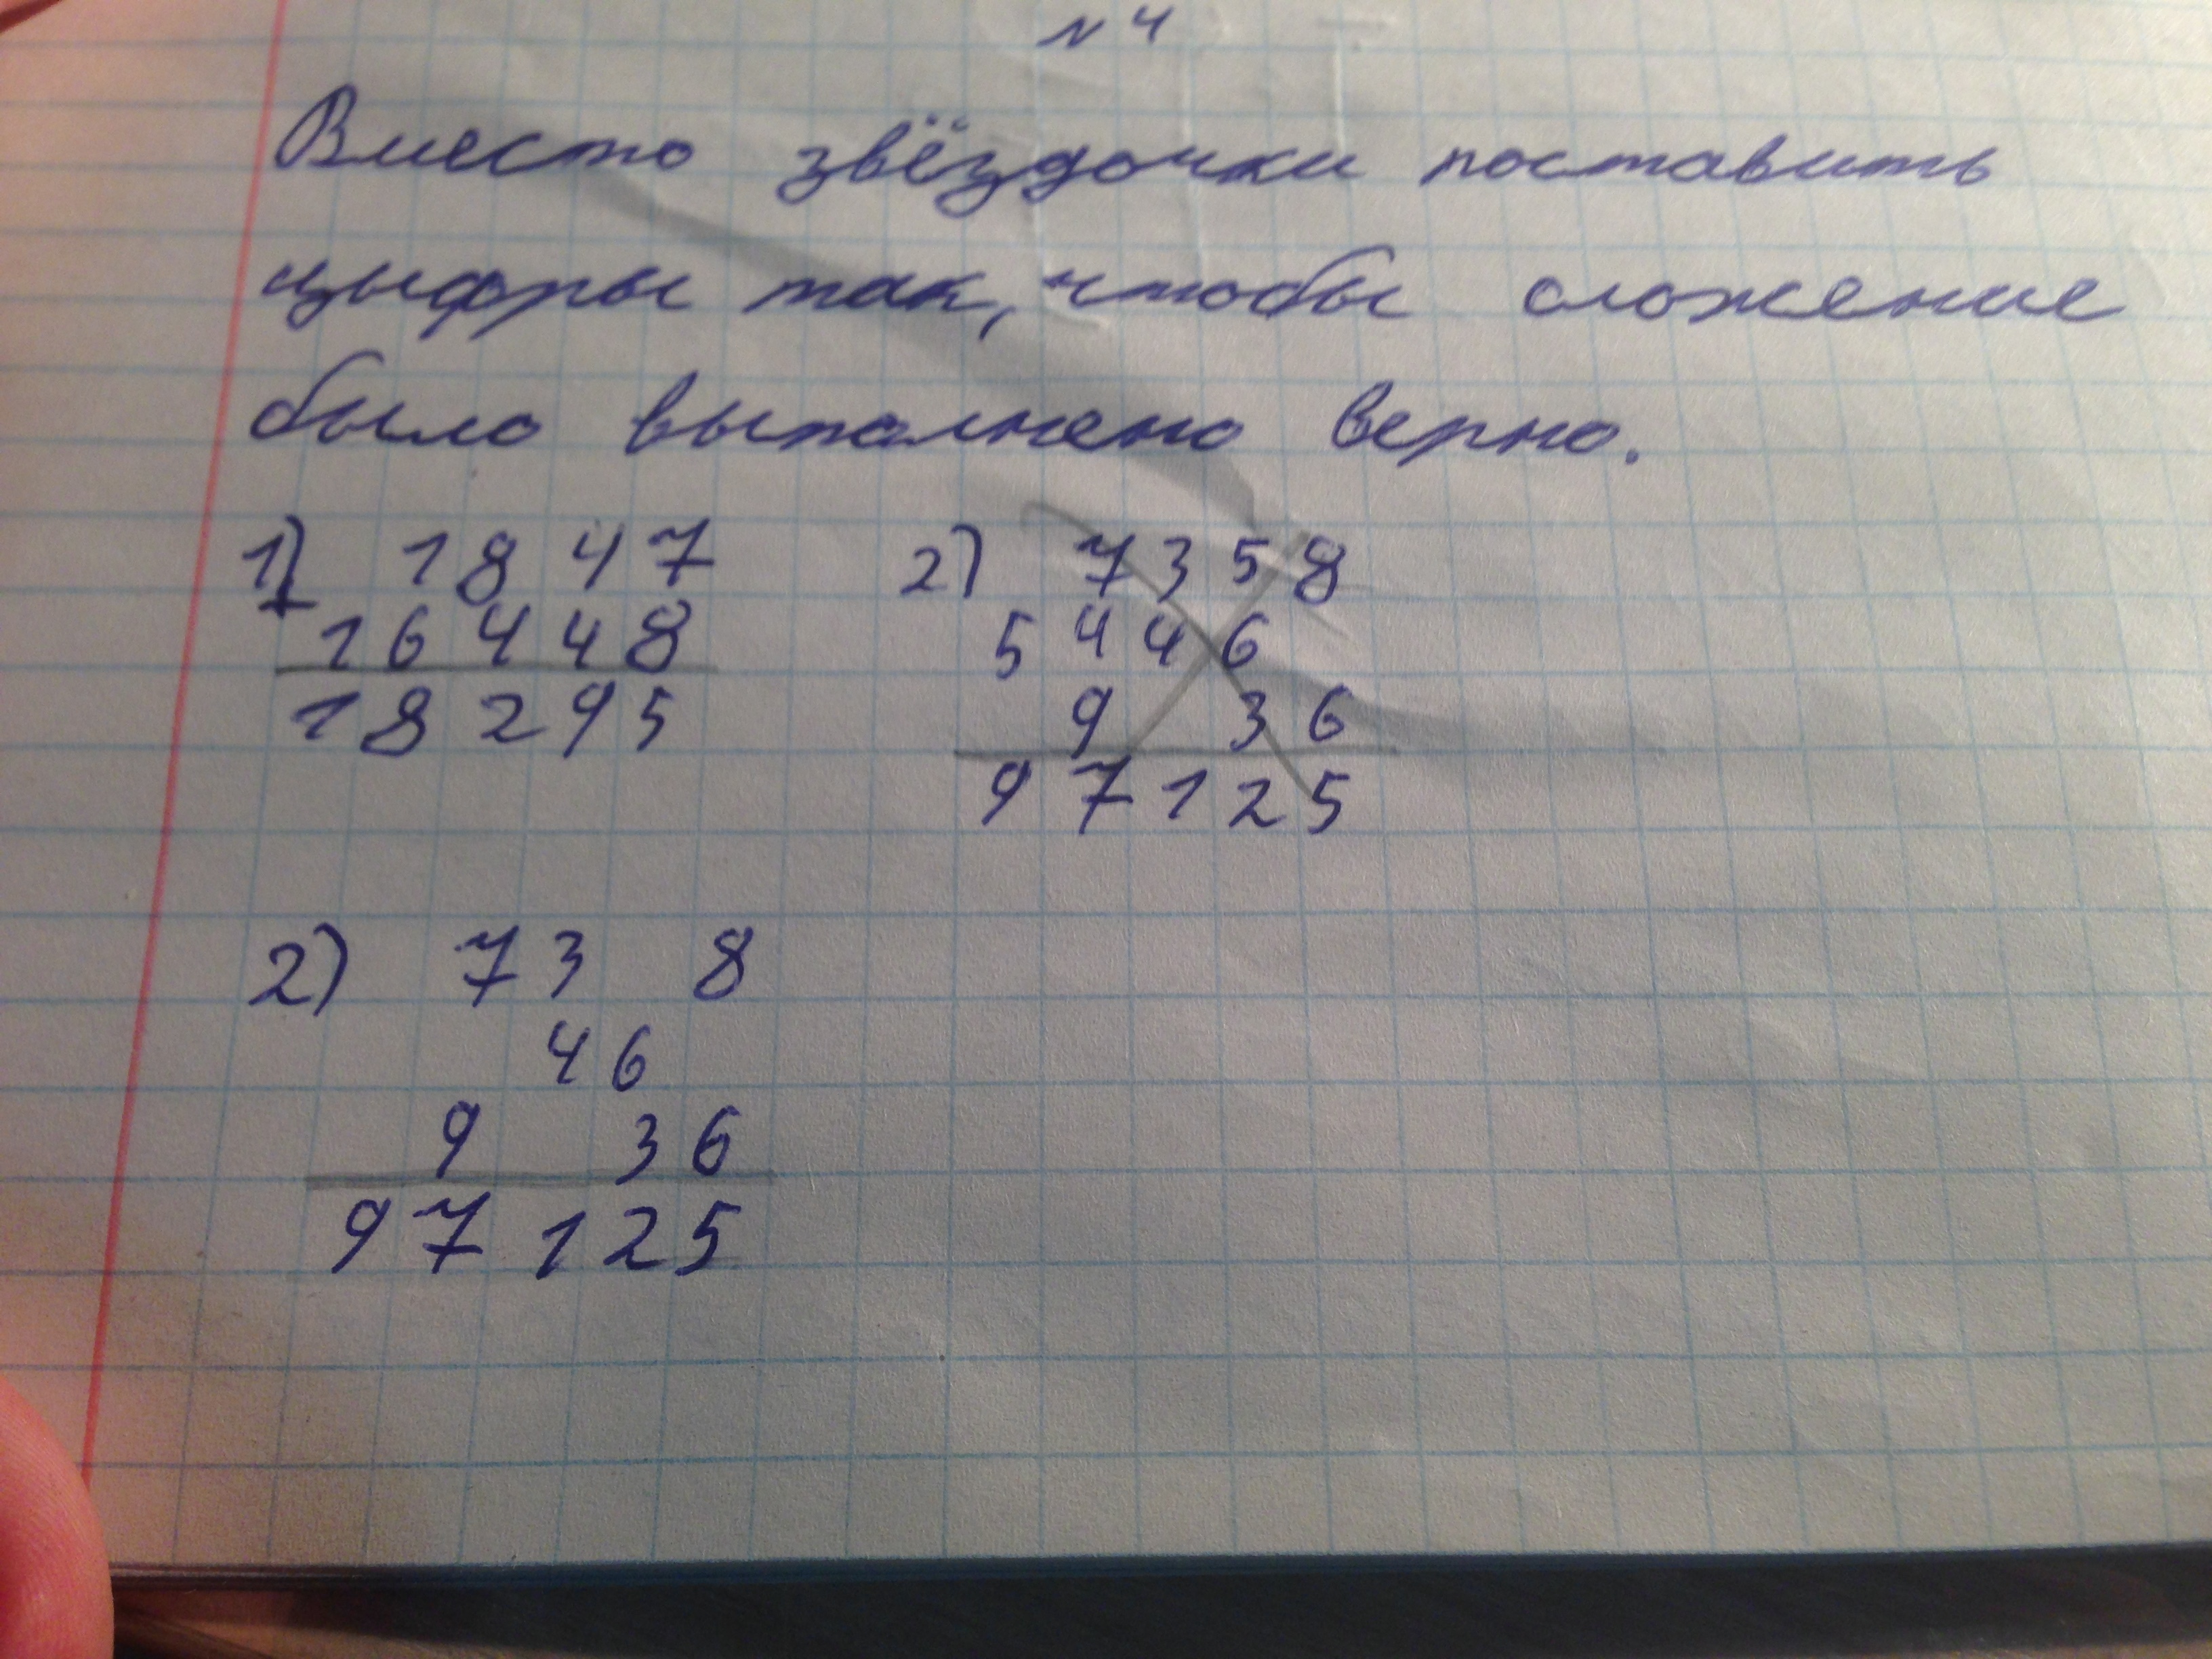 № 4
Вместо звёздочки поставить
цыфры так, чтобы сложение
было выполнено верно.
1) 1 8 4 7
+ 1 6 4 4 8
1 8 2 9 5
2) 7 3 5 8
5 4 4 6
9 3 6
9 7 1 2 5
2) 7 3 8
4 6
9 3 6
9 7 1 2 5